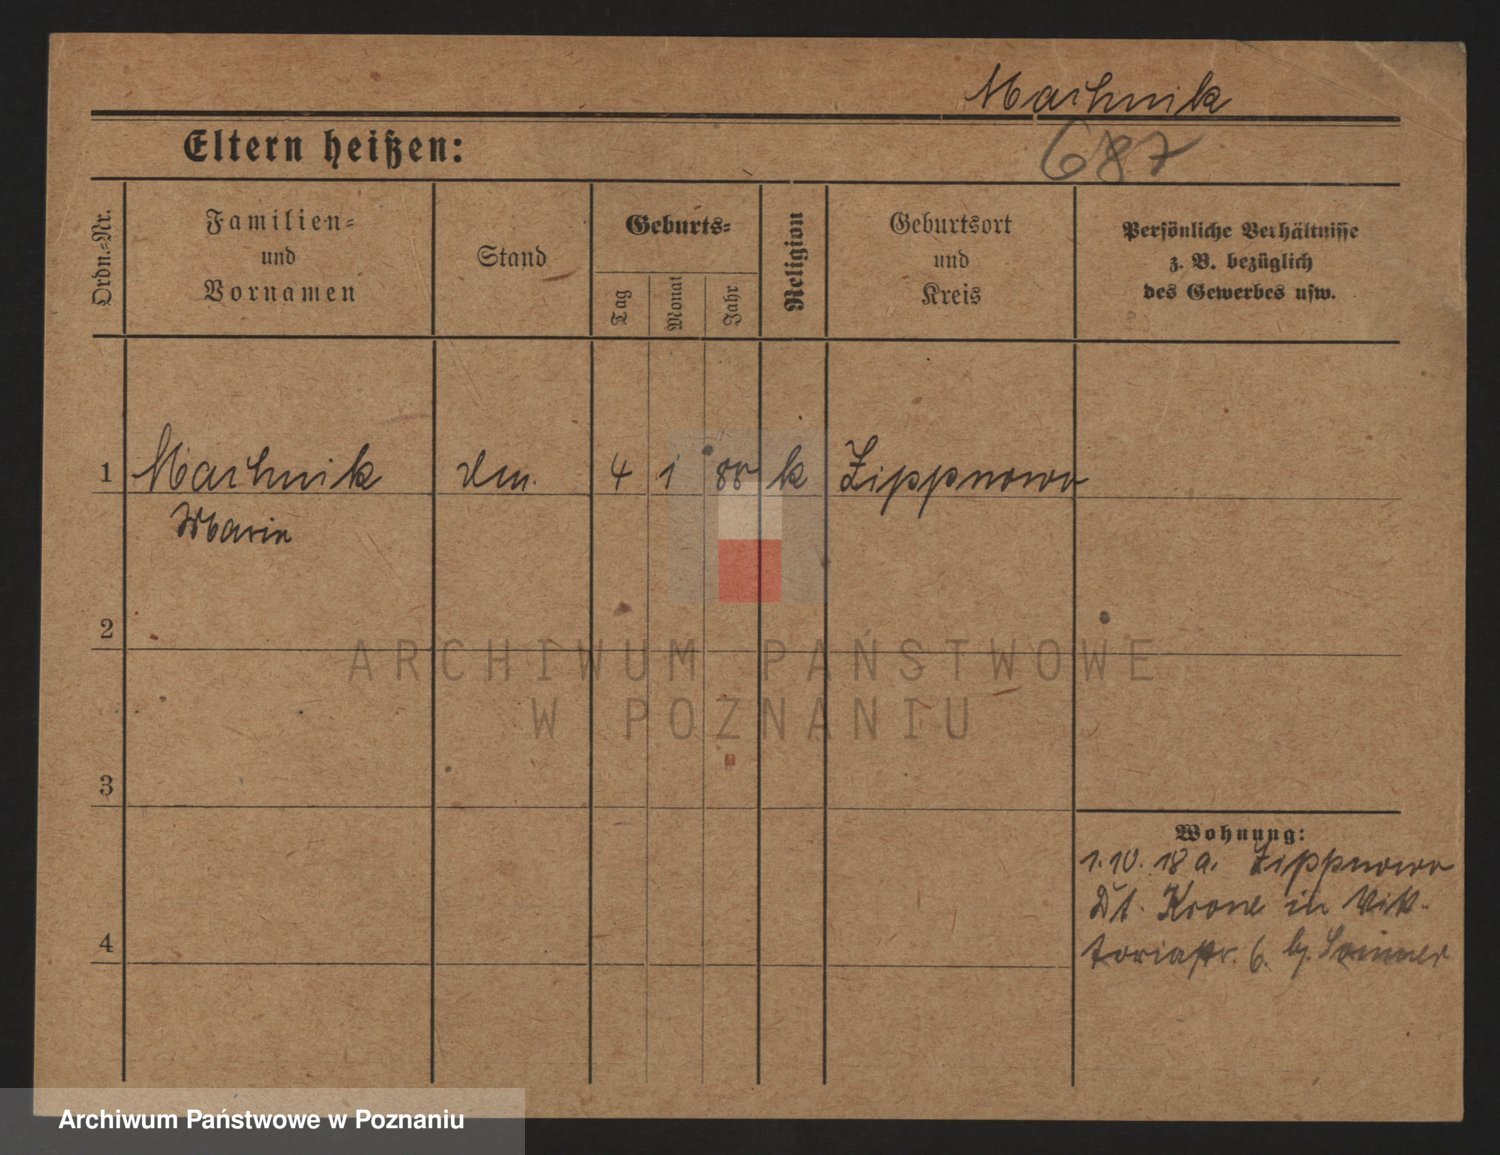 Machnik
687
Eltern heißen:
Ordn.-Nr.
Familien-
und
Vornamen
Stand
Geburts-
Tag
Monat
Jahr
Religion
Geburtsort
und
Kreis
Persönliche Verhältnisse
z. B. bezüglich
des Gewerbes usw.
1 Machnik 4 1 88 k Zippnow
Marie
2
ARCHIWUM PAŃSTWOWE
W POZNANIU
3
Wohnung:
1.10.18 a. Zippnow
Dt. Krone in Vik-
toriastr. 6. b/
4
Archiwum Państwowe w Poznaniu